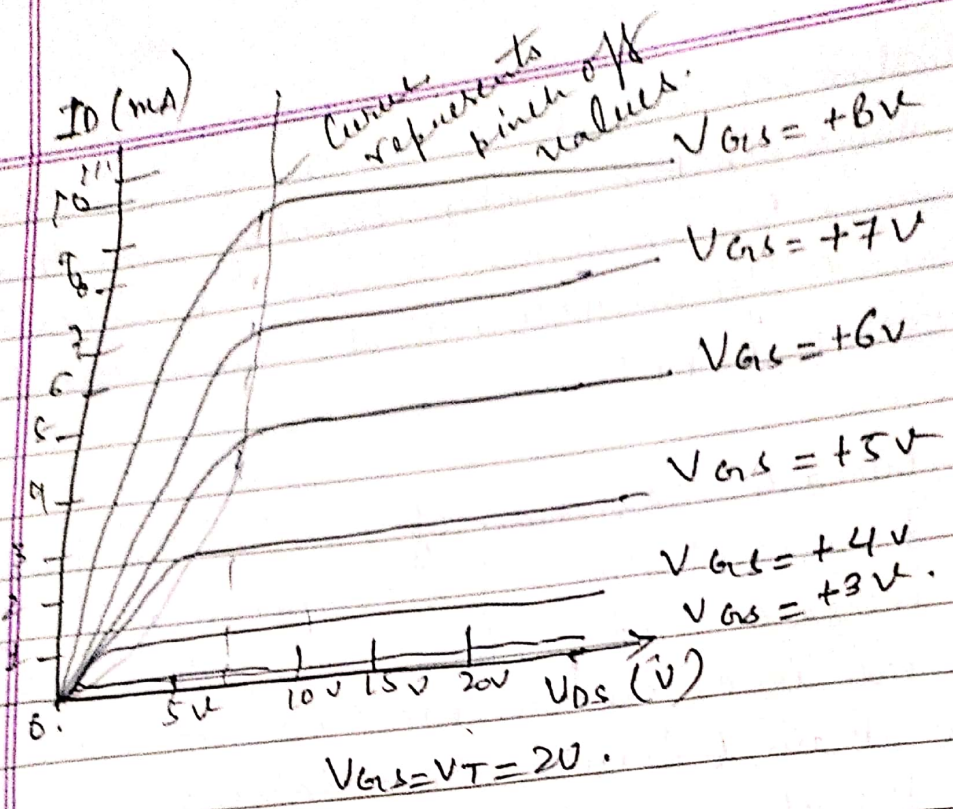 ID (mA)
Curve
represents
pinch off
values.
VGS = +8V
VGS = +7V
VGS = +6V
VGS = +5V
VGS = +4V
VGS = +3V.
10
9
8
7
6
5
4
0.
5V
10V
15V
20V
VDS (V)
VGS=VT=2V.